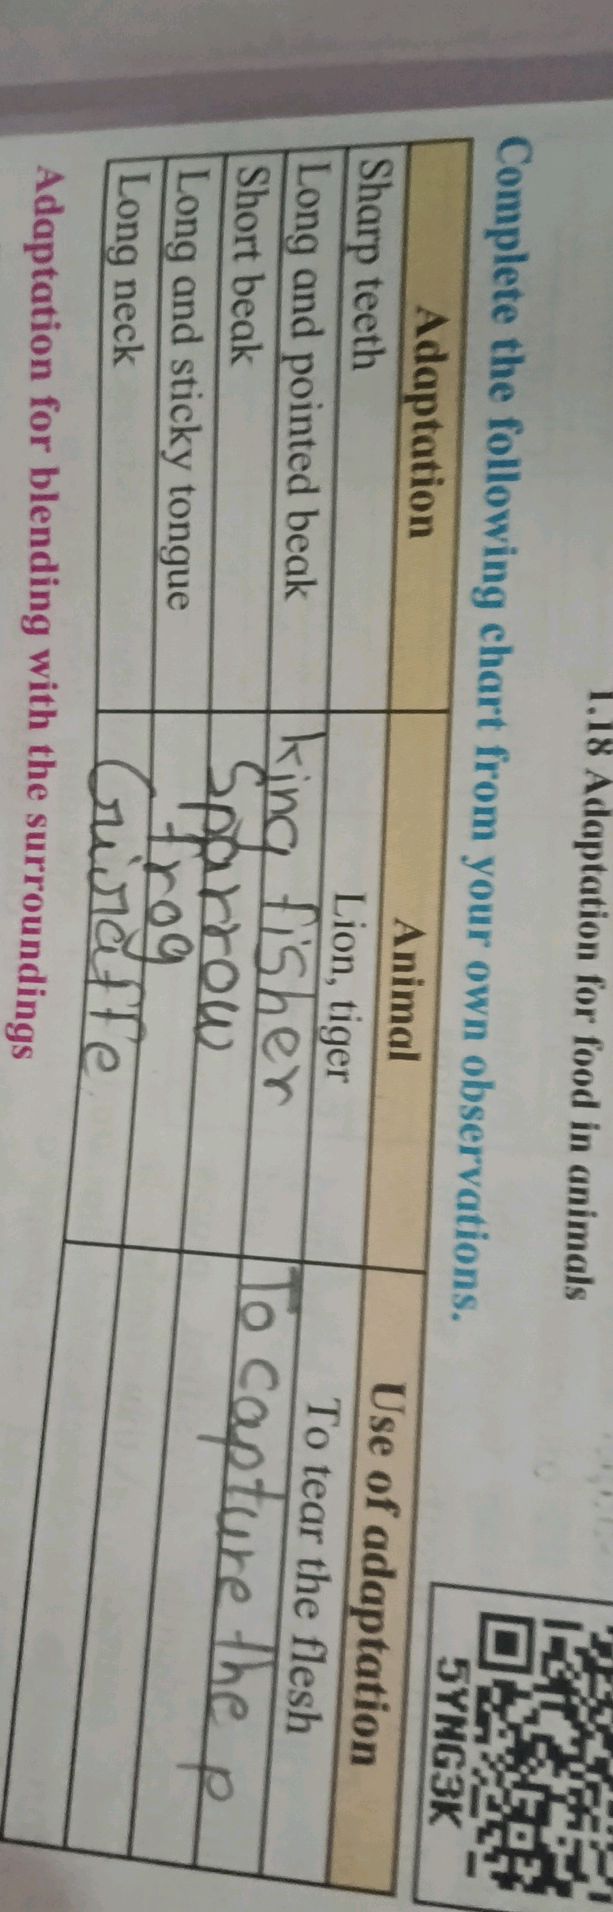 1.18 Adaptation for food in animals
5YNG3K
Complete the following chart from your own observations.
Adaptation Animal Use of adaptation
Sharp teeth Lion, tiger To tear the flesh
Long and pointed beak king fisher To capture the p
Short beak Sparrow
Long and sticky tongue frog
Long neck Guiraffe
Adaptation for blending with the surroundings